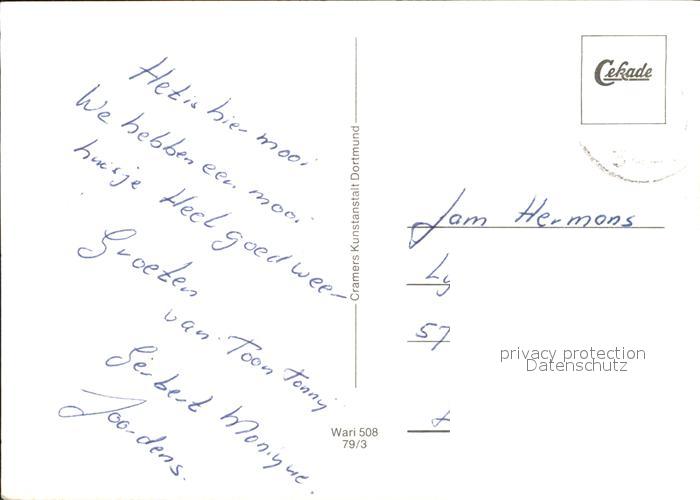 Het is hier mooi
We hebben een mooi
huisje Heel goed weer
Groeten
van Toon Tonny
Gerbert Monique
Joordens.
Cramers Kunstanstalt Dortmund
Wari 508
79/3
Cekade
Jam Hermons
Ly
57
privacy protection
Datenschutz